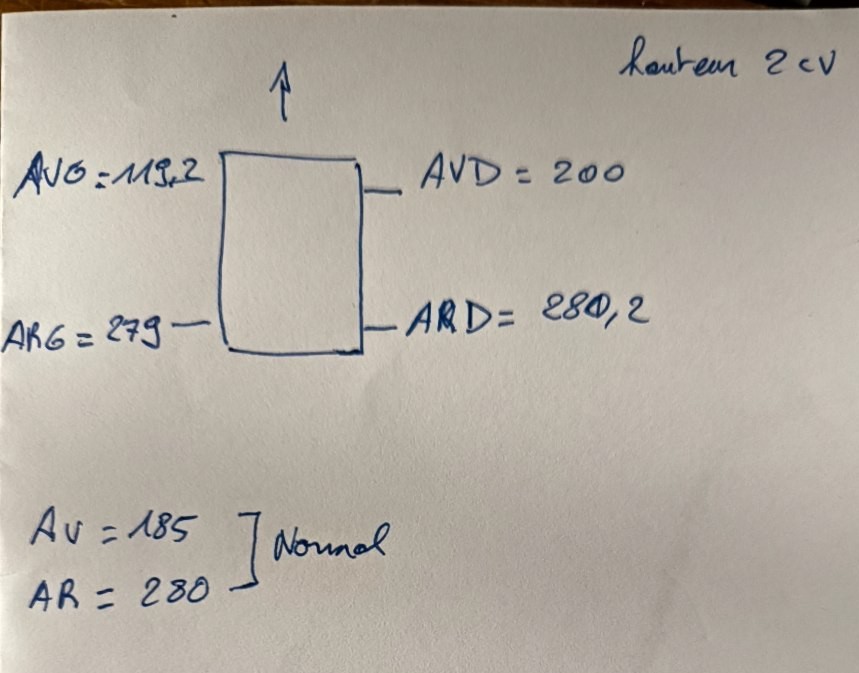 hauteur 2cv
AVG = 119,2
AVD = 200
ARG = 279
ARD = 280,2
AV = 185
AR = 280
Normal